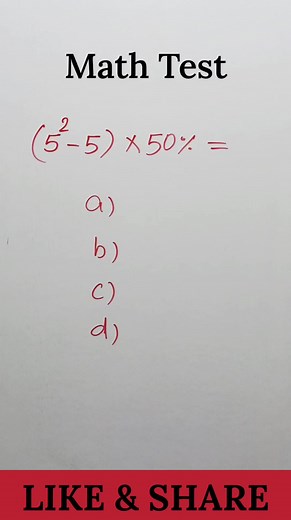 Math Test
(5²-5) × 50% =
a)
b)
c)
d)
LIKE & SHARE